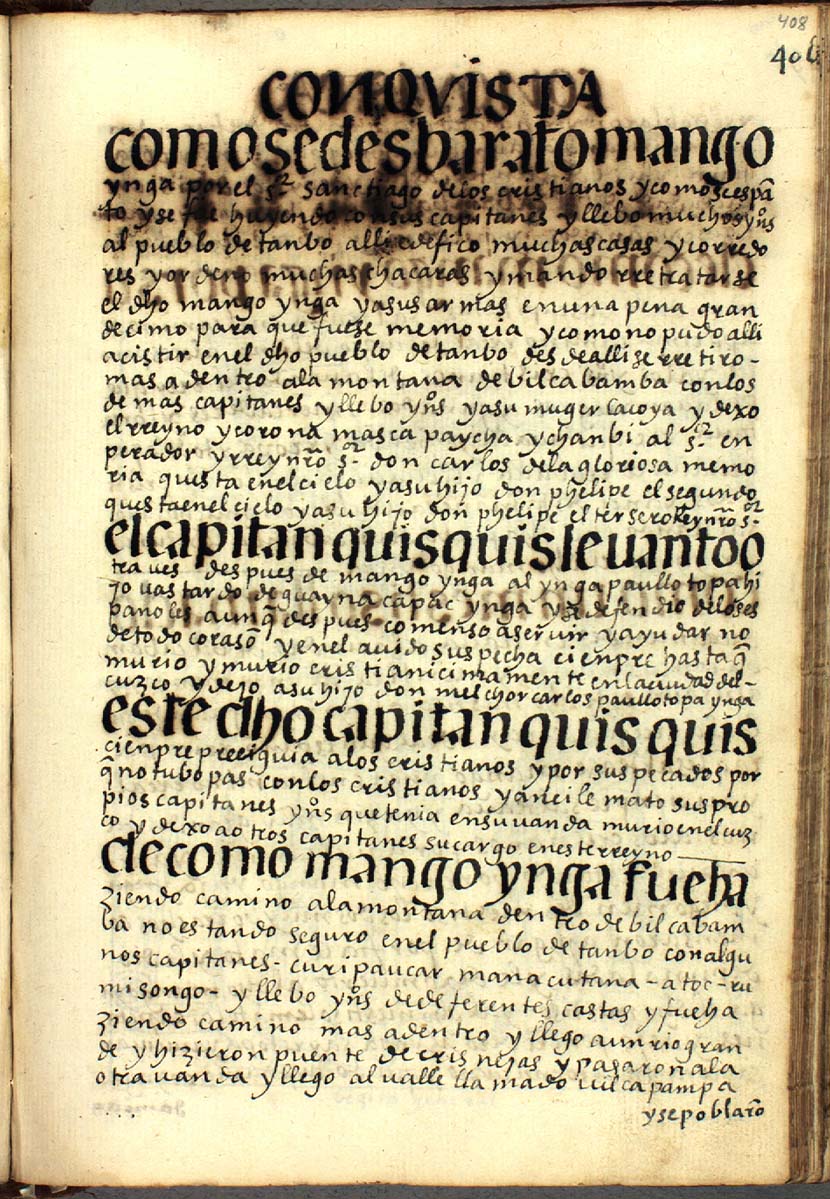 408
406
CONQVISTA
como se desbarato mango
ynga por el s.r sanctiago de los cristianos y como se espā
to y se fue huyendo con sus capitanes y llebo muchos yn̊s
al pueblo de tanbo alli edefico muchas casas y corredo
res y ordeno muchas chacaras y mando rretratarse
el dho mango ynga y a sus armas en una pena gran
decimo para que fuese memoria y como no pudo alli
acistir en el dho pueblo de tanbo desde alli se rretiro -
mas adentro a la montana de bilcabamba con los
demas capitanes y llebo yn̊s y a su muger la coya y dexo
el rreyno y corona masca paycha y chanbi al s.r en
perador y rrey nr̄o s.r don carlos de la gloriosa memo
ria questa en el cielo y a su hijo don phelipe el segundo
questa en el cielo y a su hijo don phelipe el tersero rrey nr̄o s.r
el capitan quisquis levanto o
tra ves despues de mango ynga al ynga paullo topa hi
jo vastardo de guayna capac ynga y se defendio de los es
panoles aunq̄ despues comenso a seruir y ayudar no
de todo corasō y en el auido suspecha cienpre hasta q̄
murio y murio cristianicimamente en la ciudad del -
cuzco y dejo a su hijo don melchor carlos paullo topa ynga
este dho capitan quisquis
cienpre preciguia a los cristianos y por sus pecados por
q̄ no tubo pas con los cristianos y anci le mato sus pro
pios capitanes yn̊s que tenia en su uanda murio en el cuz
co y dexo a otros capitanes su cargo en este rreyno
de como mango ynga fue ha
ziendo camino a la montana dentro de bilcabam
ba no estando seguro en el pueblo de tanbo con algu
nos capitanes - curipaucar manacutana - atoc - ru
mi songo - y llebo yn̊s de deferentes castas y fue ha
ziendo camino mas adentro y llego a un rio gran
de y hizieron puente de crisnejas y pasaron a la
otra uanda y llego al ualle llamado uilcapampa
y se poblarō